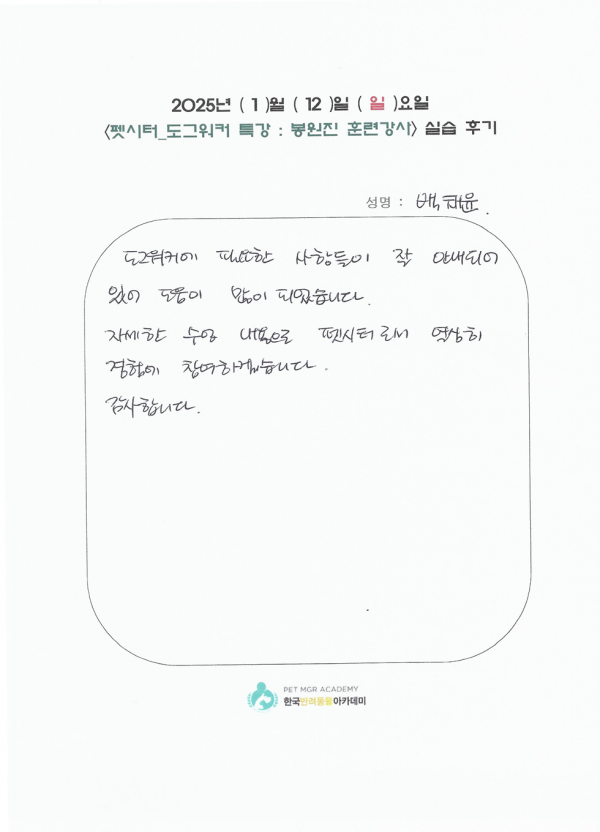 2025년 ( 1 )월 ( 12 )일 ( 일 )요일
<펫시터_도그워커 특강 : 봉원진 훈련강사> 실습 후기
성명 : 백채윤.
도그워커에 필요한 사항들이 잘 안내되어
있어 도움이 많이 되었습니다.
자세한 수업 내용으로 펫시터로서 열심히
경험에 참여하겠습니다.
감사합니다.
PET MGR ACADEMY
한국반려동물아카데미